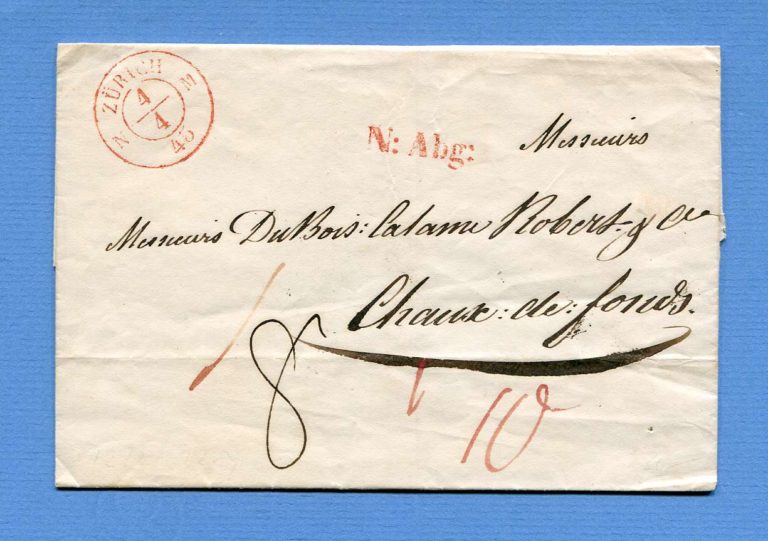 ZÜRICH
N M
4
4
45
N: Abg:
Messieurs
Messieurs DuBois: Calame Robert & Cie
Chaux: de: fonds.
8
10